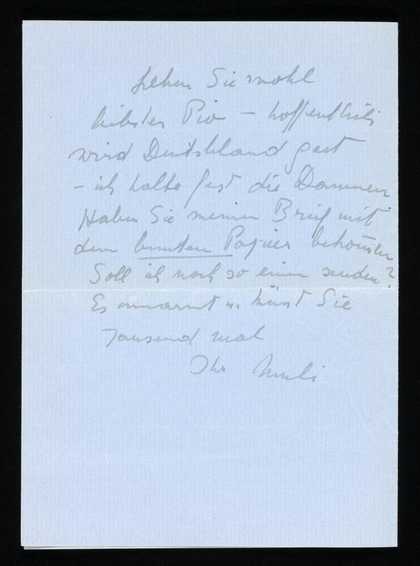 Leben Sie wohl
liebster Pio – hoffentlich
wird Deutschland gut
– ich halte fest die Daumen
Haben Sie meinen Brief mit
dem bunten Papier bekommen
Soll ich noch so einen senden?
Es umarmt u. küsst Sie
Tausend mal
Ihr